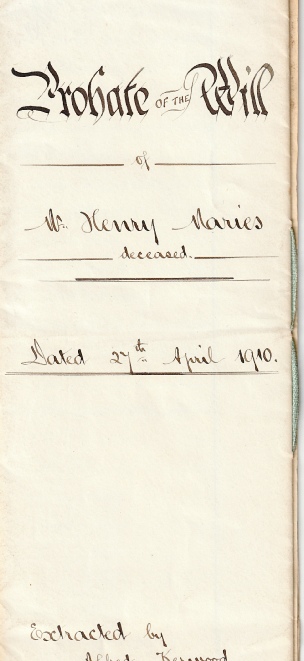 Probate OF THE Will
of
Mr. Henry Maries
deceased.
Dated 27th April 1910.
Extracted by
Alfred Kerwood